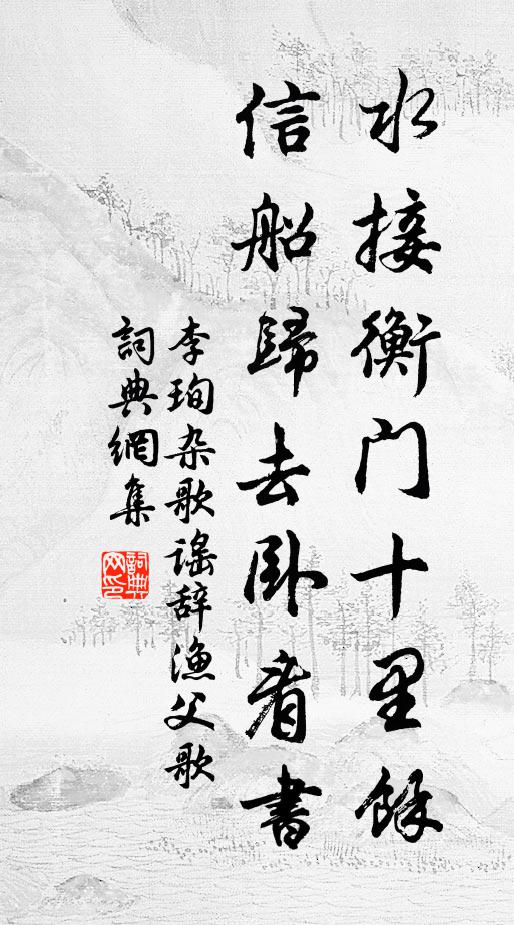 水接衡门十里餘
信船歸去卧看書
李珣杂歌谣辞渔父歌
詞典網集
詞典
网印